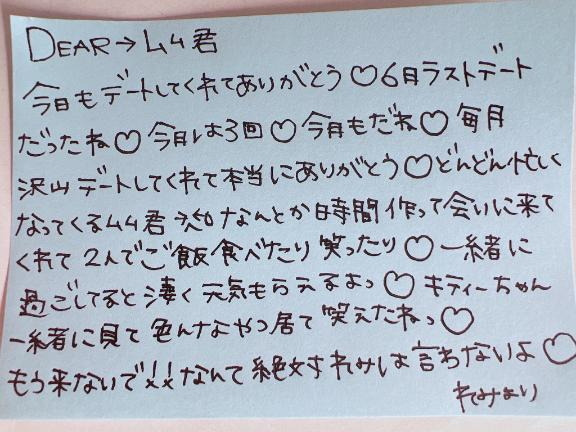 DEAR→ムム君
今日もデートしてくれてありがとう♡6月ラストデート
だったね♡今月は3回♡今月もだね♡毎月
沢山デートしてくれて本当にありがとう♡どんどん忙しく
なってくるムム君 なんとか時間作って会いに来て
くれて2人でご飯食べたり笑ったり♡一緒に
過ごしてると凄く元気もらえるよっ♡キティーちゃん
一緒に見て色んなやつ居て笑えたねっ♡
もう来ないで!!なんて絶対れみは言わないよ♡
れみより